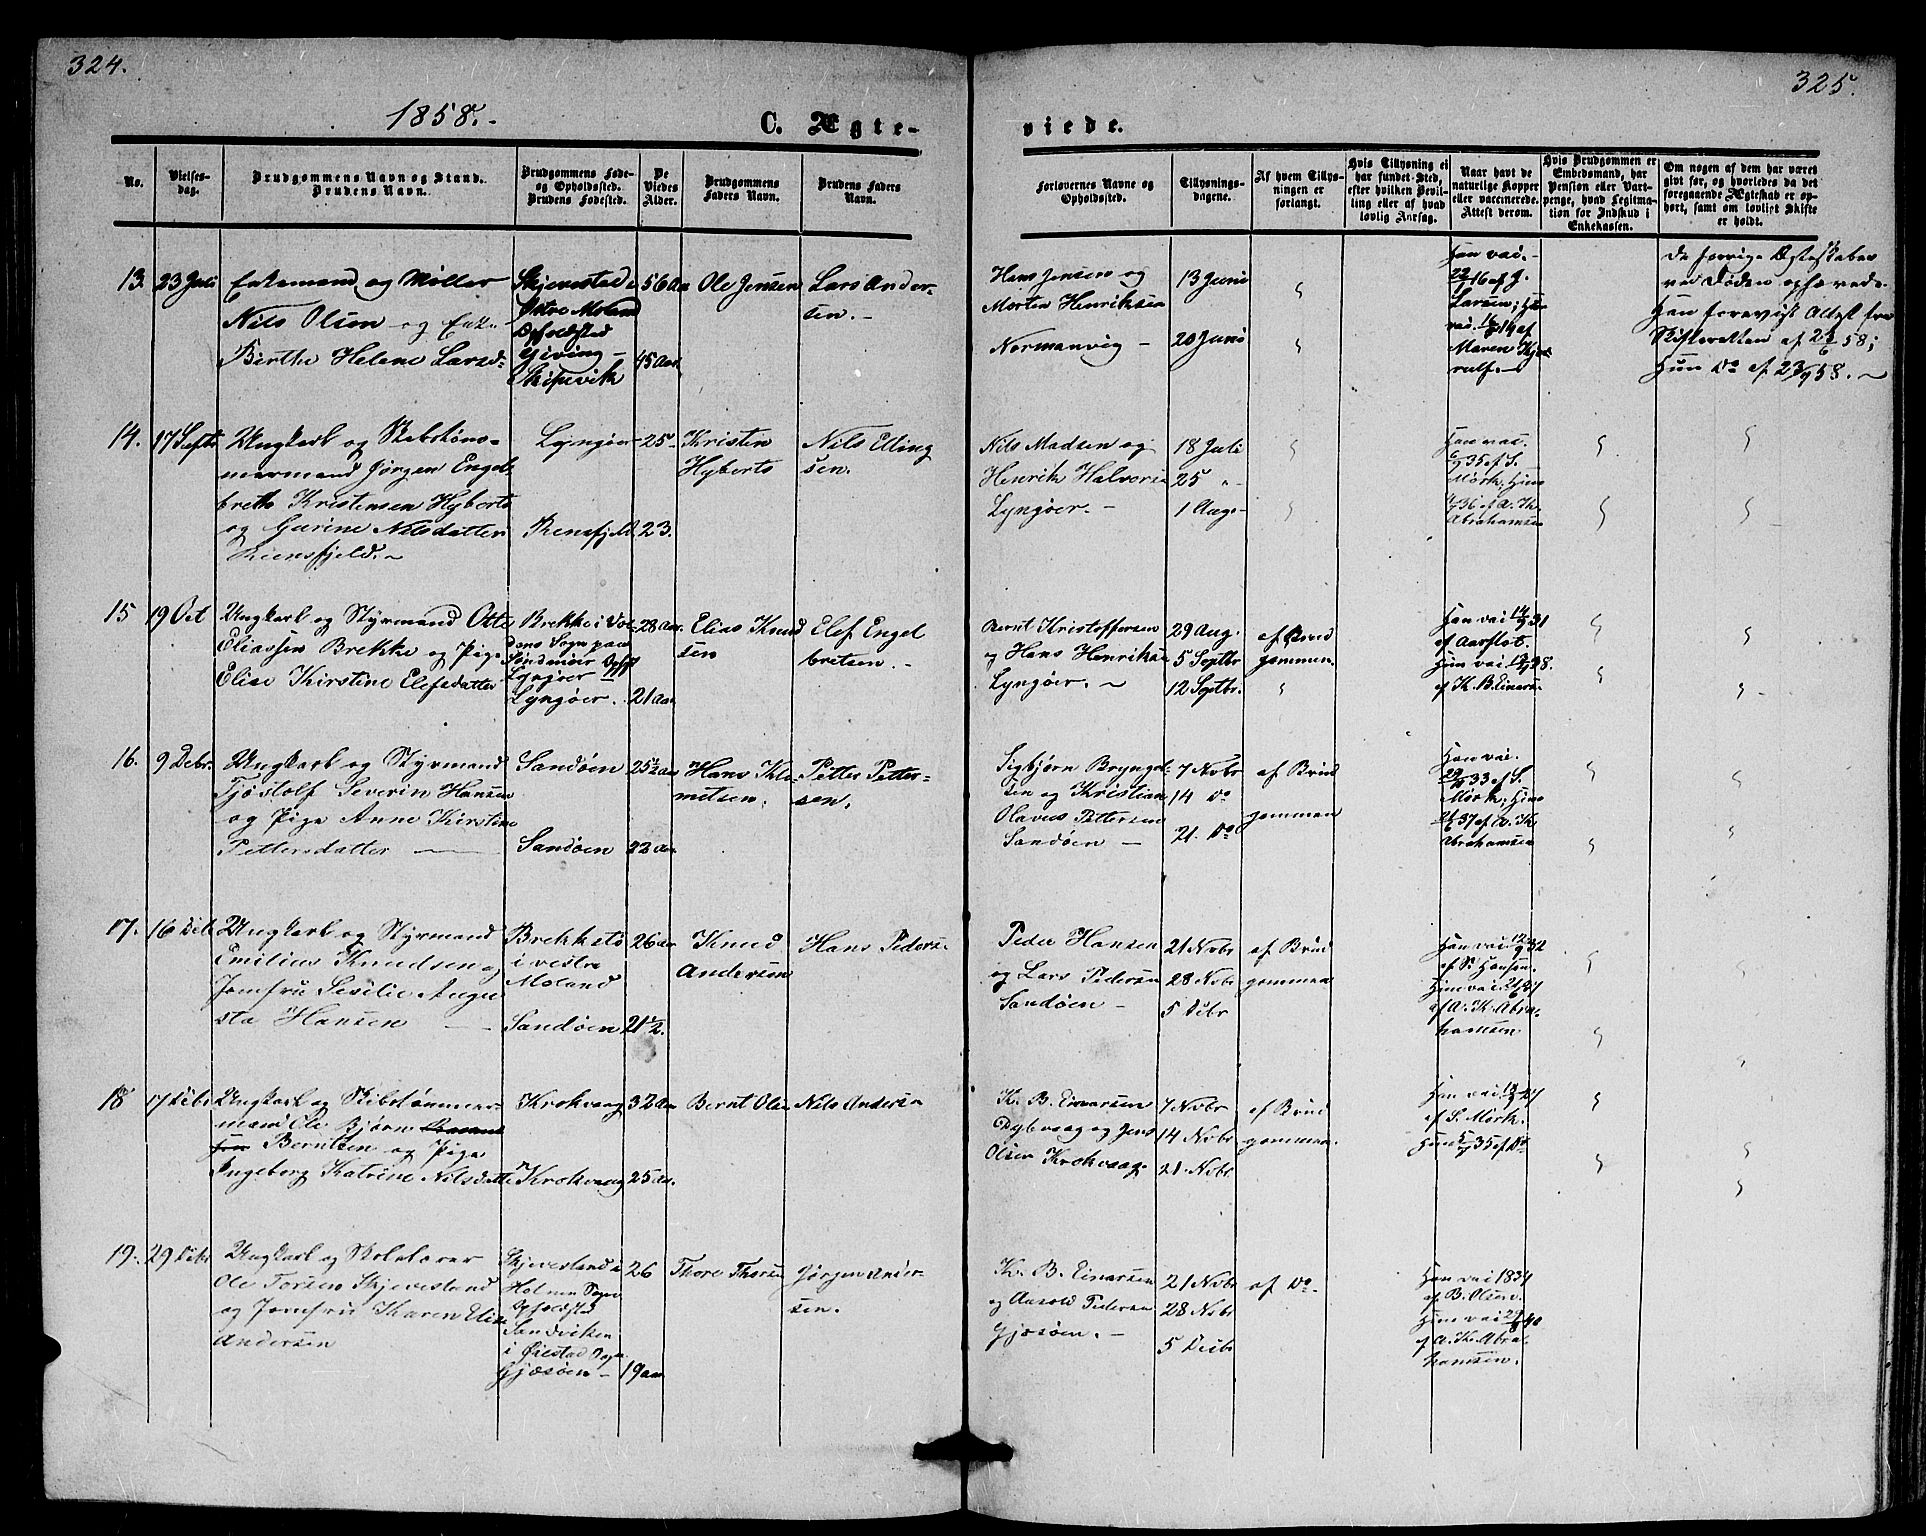 324.
1858.
C. Ægte-
No.
Vielses-
dag.
Brudgommens Navn og Stand.
Brudens Navn.
Brudgommens Føde-
og Opholdssted.
Brudens Fødested.
De
Viedes
Alder.
Brudgommens
Faders Navn.
Brudens Faders
Navn.
13. 23 Juli
Enkemand og Møller
Nils Olsen og Enke
Birthe Helene Larsd.
Skjevestad i
Østre Moland
Opholdsted
Giving
Skipevik
56 Aar
45 Aar.
Ole Jensen
Lars Ander-
sen.
14. 17 Septr
Ungkarl og Skibstøm-
mermand Jørgen Engel-
breth Kristensen Hyberts
og Gurine Nilsdatter
Riensfjeld.
Lyngøer
Rensfjeld.
25
23.
Kristen
Hyberts
Nils Elling
sen.
15 19 Oct
Ungkarl og Styrmand Otte
Eliassen Brekke og Pige
Elise Kirstine Elefsdatter
Brekke i Vol-
dens Sogn paa
Søndmør Oph.
Lyngøer
Lyngøer.
28 Aar.
21 Aar
Elias Knud
sen
Elef Engel
bretsen.
16. 9 Debr.
Ungkarl og Styrmand
Tjøstolf Severin Hansen
og Pige Anne Kirstine
Pettersdatter
Sandøen
Sandøen
25½ Aar
22 Aar.
Hans Kle-
metsen.
Petter Petter-
sen.
17. 16 Debr
Ungkarl og Styrmand
Emilius Knudsen og
Jomfru Sesilie Augu
sta Hansen
Brekkestø
i vestre
Moland
Sandøen
26 Aar
21½.
Knud
Andersen
Hans Peders.
18 17 Debr
Ungkarl og Skibstømmer-
mand Ole Bjørn
Berntsen og Pige
Ingeborg Katrine Nilsdatt.
Krokvaag
Krokvaag
32 Aar
25 Aar.
Bernt Olsen
Nils Andersen
19. 29 Debr
Ungkarl og Skolelærer
Ole Torsen Skjevesland
og Jomfru Karen Elise
Andersen
Skjevesland i
Holmen Sogn
Opholdsted
Sandviken
i Øiestad Sogn
Gjæsøen
26
19 aar
Thore Thorsen
Jørgen Ander-
sen.
325.
viede.
Forlovernes Navne og
Opholdssted.
Tillysnings-
dagene.
Af hvem Tillys-
ningen er
forlangt.
Hvis Tillysning ei
har fundet Sted,
efter hvilken Bevil-
ling eller af hvad
lovlig Aarsag.
Naar havt de
naturlige Kopper
eller vaccinerede.
Attest derom.
Hvis Brudgommen er
Embedsmand, har
Pension eller Vart-
penge, hvad Legitima-
tion for Indskud i
Enkekassen.
Om nogen af dem har været
gift før, og hvorledes da det
foregaaende Ægteskab er op-
hørt, samt om lovligt Skifte
er holdt.
Hans Jensen og
Morten Henriksen
Normanvig
13 Juni
20 Juni
Han vac.
22/9 16 af J.
Larsen; Hun
vac. 14 af
Maren Kjer
rulf.
De forrige Ægteskaber
ved Døden ophævede.
Han forevist Attest fra
Skifteretten af 23/6 58;
Hun Do af 58.
Nils Madsen og
Henrik Halvors
Lyngøer.
18 Juli
25 "
1 Aug.
Han vac.
35 af S.
Mørk, Hun
36 af A. K.
Abrahamsen
Bernt Kristoffersen
og Hans Henriksen
Lyngøer.
29 Aug.
5 Septbr
12 Septbr.
af Brud
gommen.
Han vac. 14/9 31
af Aarflot.
Hun vac. 38.
af K. B. Einarsen
Sigbjørn Bryngel-
sen og Kristian
Olavus Pettersen
Sandøen
7 Novbr
14 Do
21. Do
af Brud
gommen
Han vac.
33 af S.
Mørk, Hun
37 af A. K.
Abrahamsen
Peder Hansen
og Lars Pedersen
Sandøen
21 Novbr
28 Novbr
5 Debr
af Brud
gommen
Han vac. 12/9 32
af S. Hansen.
Hun vac. 37
af A. K. Abra-
hamsen
K. B. Einarsen
Dybvaag og Jens
Olsen Krokvaag.
7 Novbr
14 Novbr
21. Novbr.
af Brud
gommen.
Han vac. 27
af S. Mørk.
Hun 35 af Do
K. B. Einarsen
og Aasold Pedersen
Gjæsøen.
21 Novbr
28 Novbr
5 Debr
af Do
Han vac 1834
af B. Olsen.
Hun vac. 40
af A. K. Abra-
hamsen.